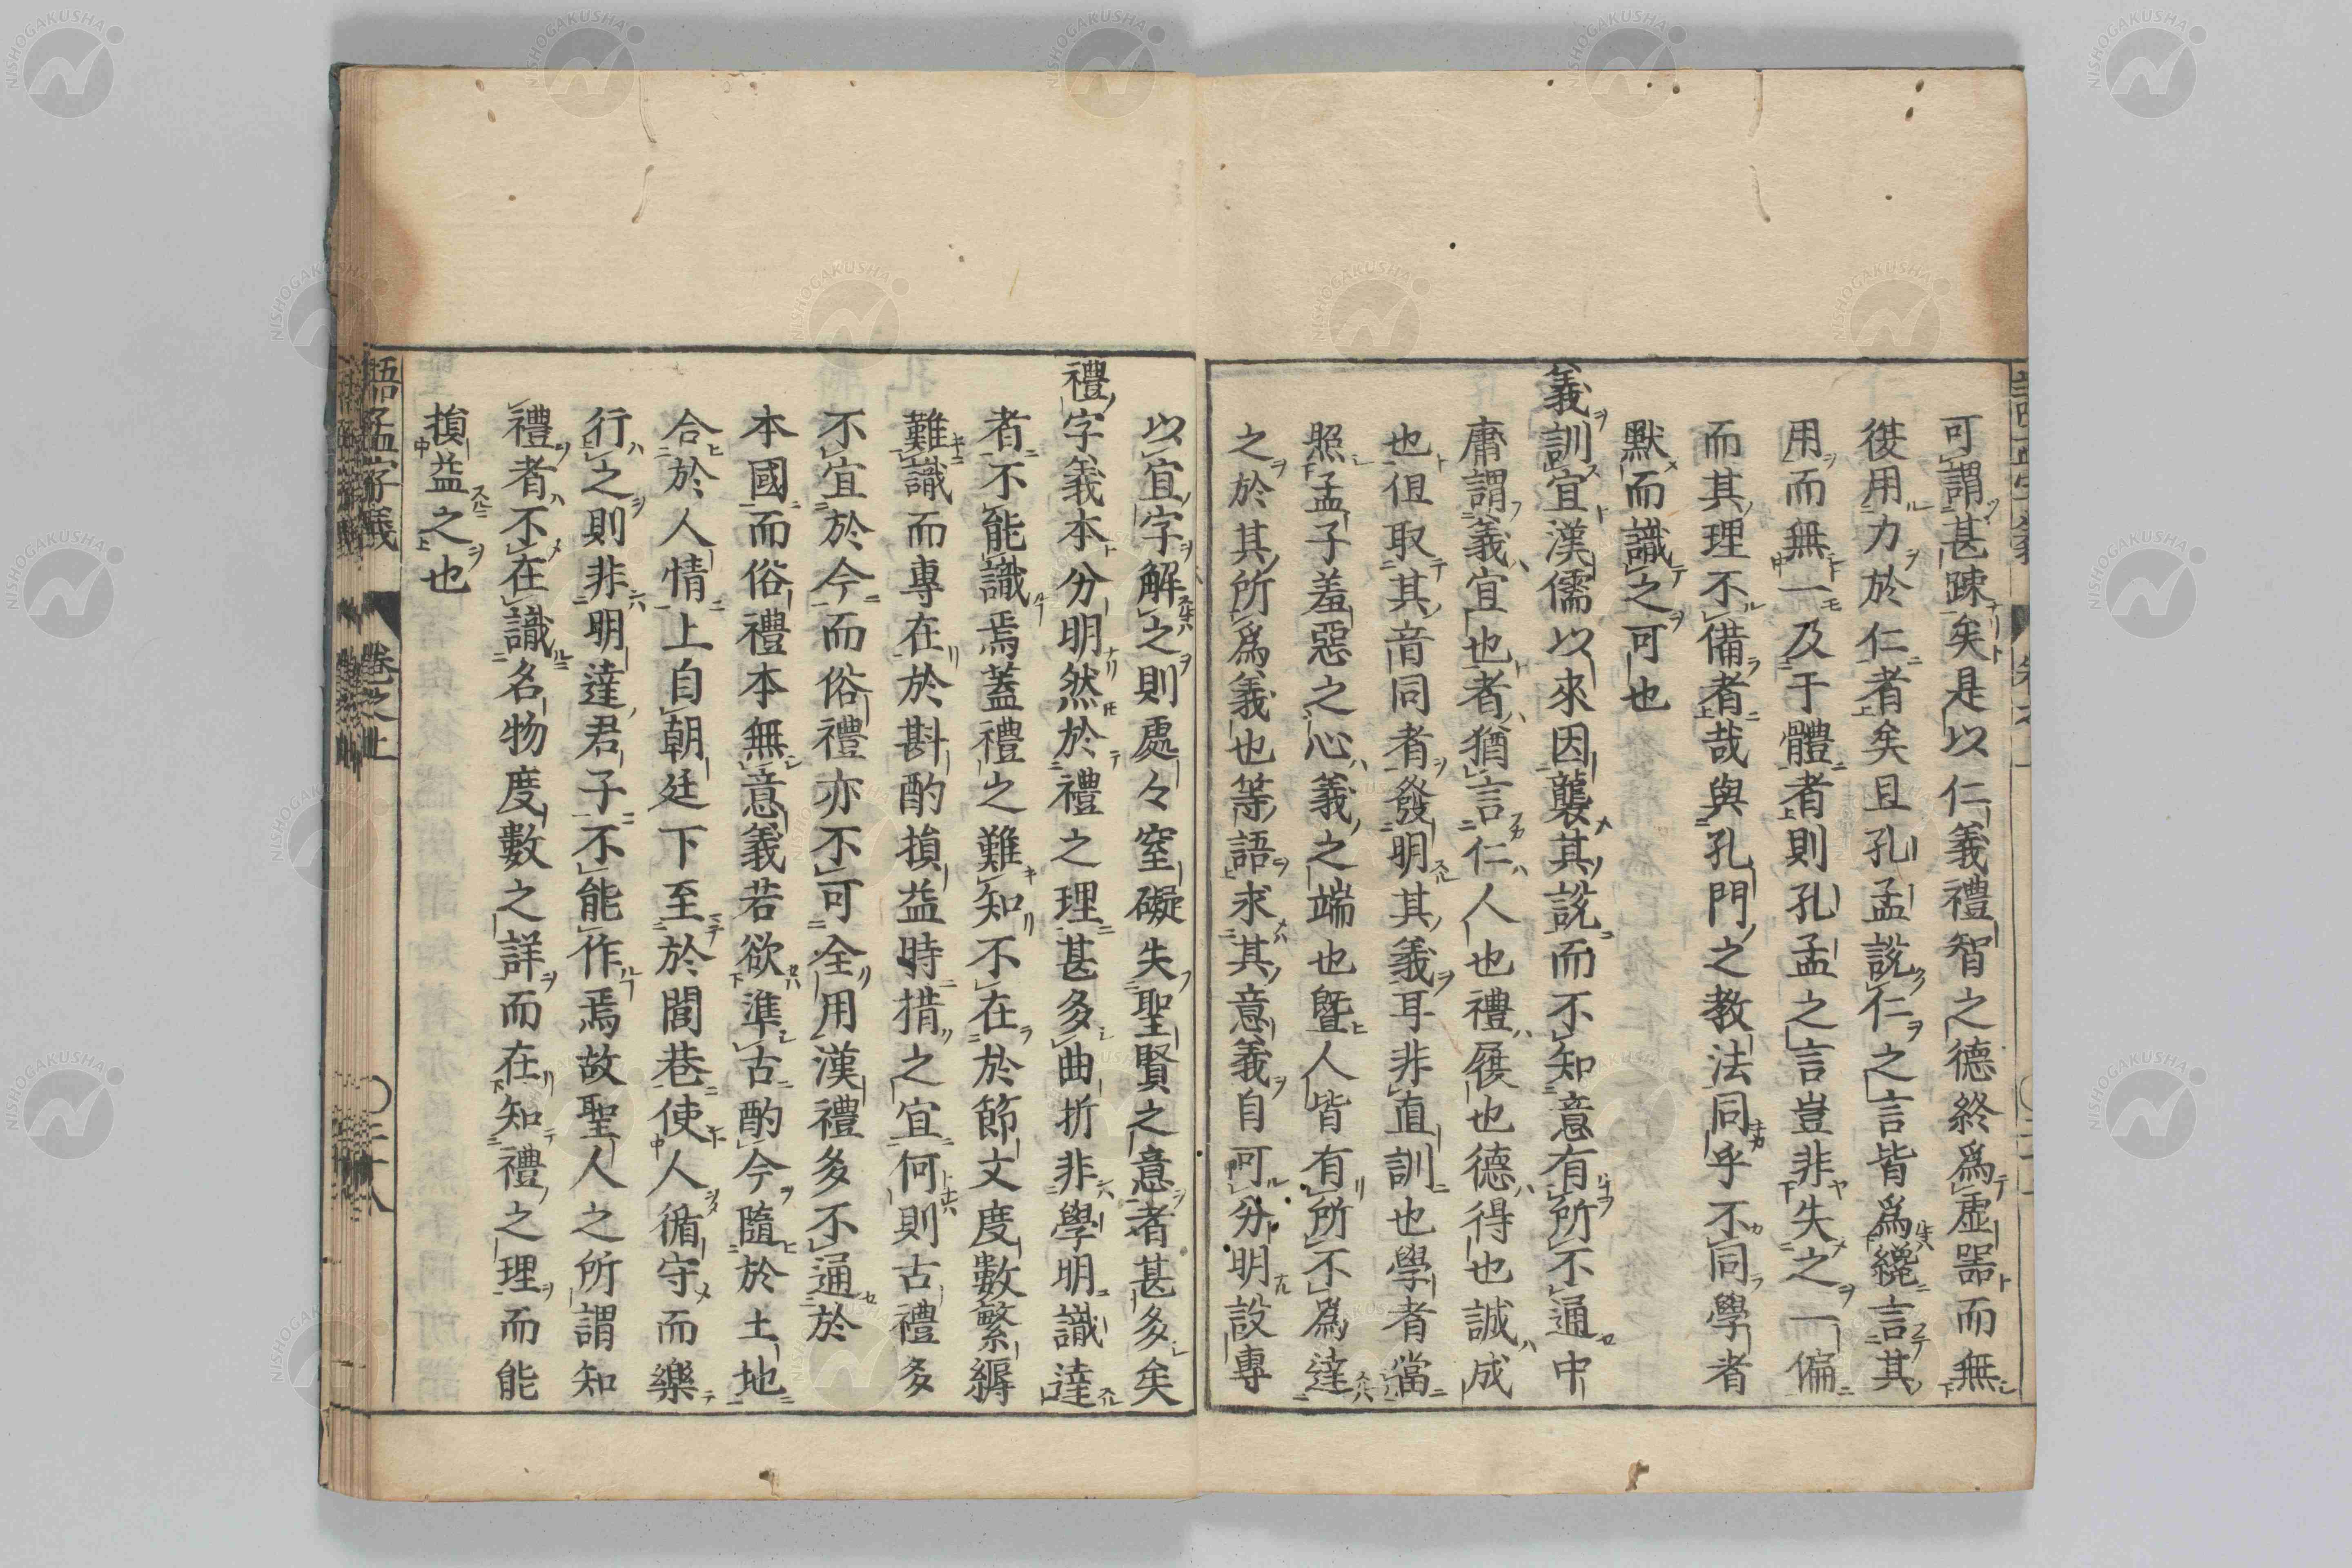 可謂甚踈矣是以仁義禮智之德終爲虛器而無
從用力於仁者矣且孔孟說仁之言皆爲纔言其
用而無一及于體者則孔孟之言豈非失之一偏
而其理不備者哉與孔門之教法同乎不同學者
默而識之可也
義訓宜漢儒以來因襲其說而不知意有所不通中
庸謂義宜也者猶言仁人也禮履也德得也誠成
也但取其音同者發明其義耳非直訓也學者當
照孟子羞惡之心義之端也曁人皆有所不爲達
之於其所爲義也等語求其意義自可分明設專
以宜字解之則處々窒礙失聖賢之意者甚多矣
禮字義本分明然於禮之理甚多曲折非學明識達
者不能識焉蓋禮之難知不在於節文度數繁縟
難識而專在於斟酌損益時措之宜何則古禮多
不宜於今而俗禮亦不可全用漢禮多不通於
本國而俗禮本無意義若欲準古酌今隨於土地
合於人情上自朝廷下至於閭巷使人循守而樂
行之則非明達君子不能作焉故聖人之所謂知
禮者不在識名物度數之詳而在知禮之理而能
損益之也
語孟字義 卷之上 〇二十八
NISHOGAKUSHA